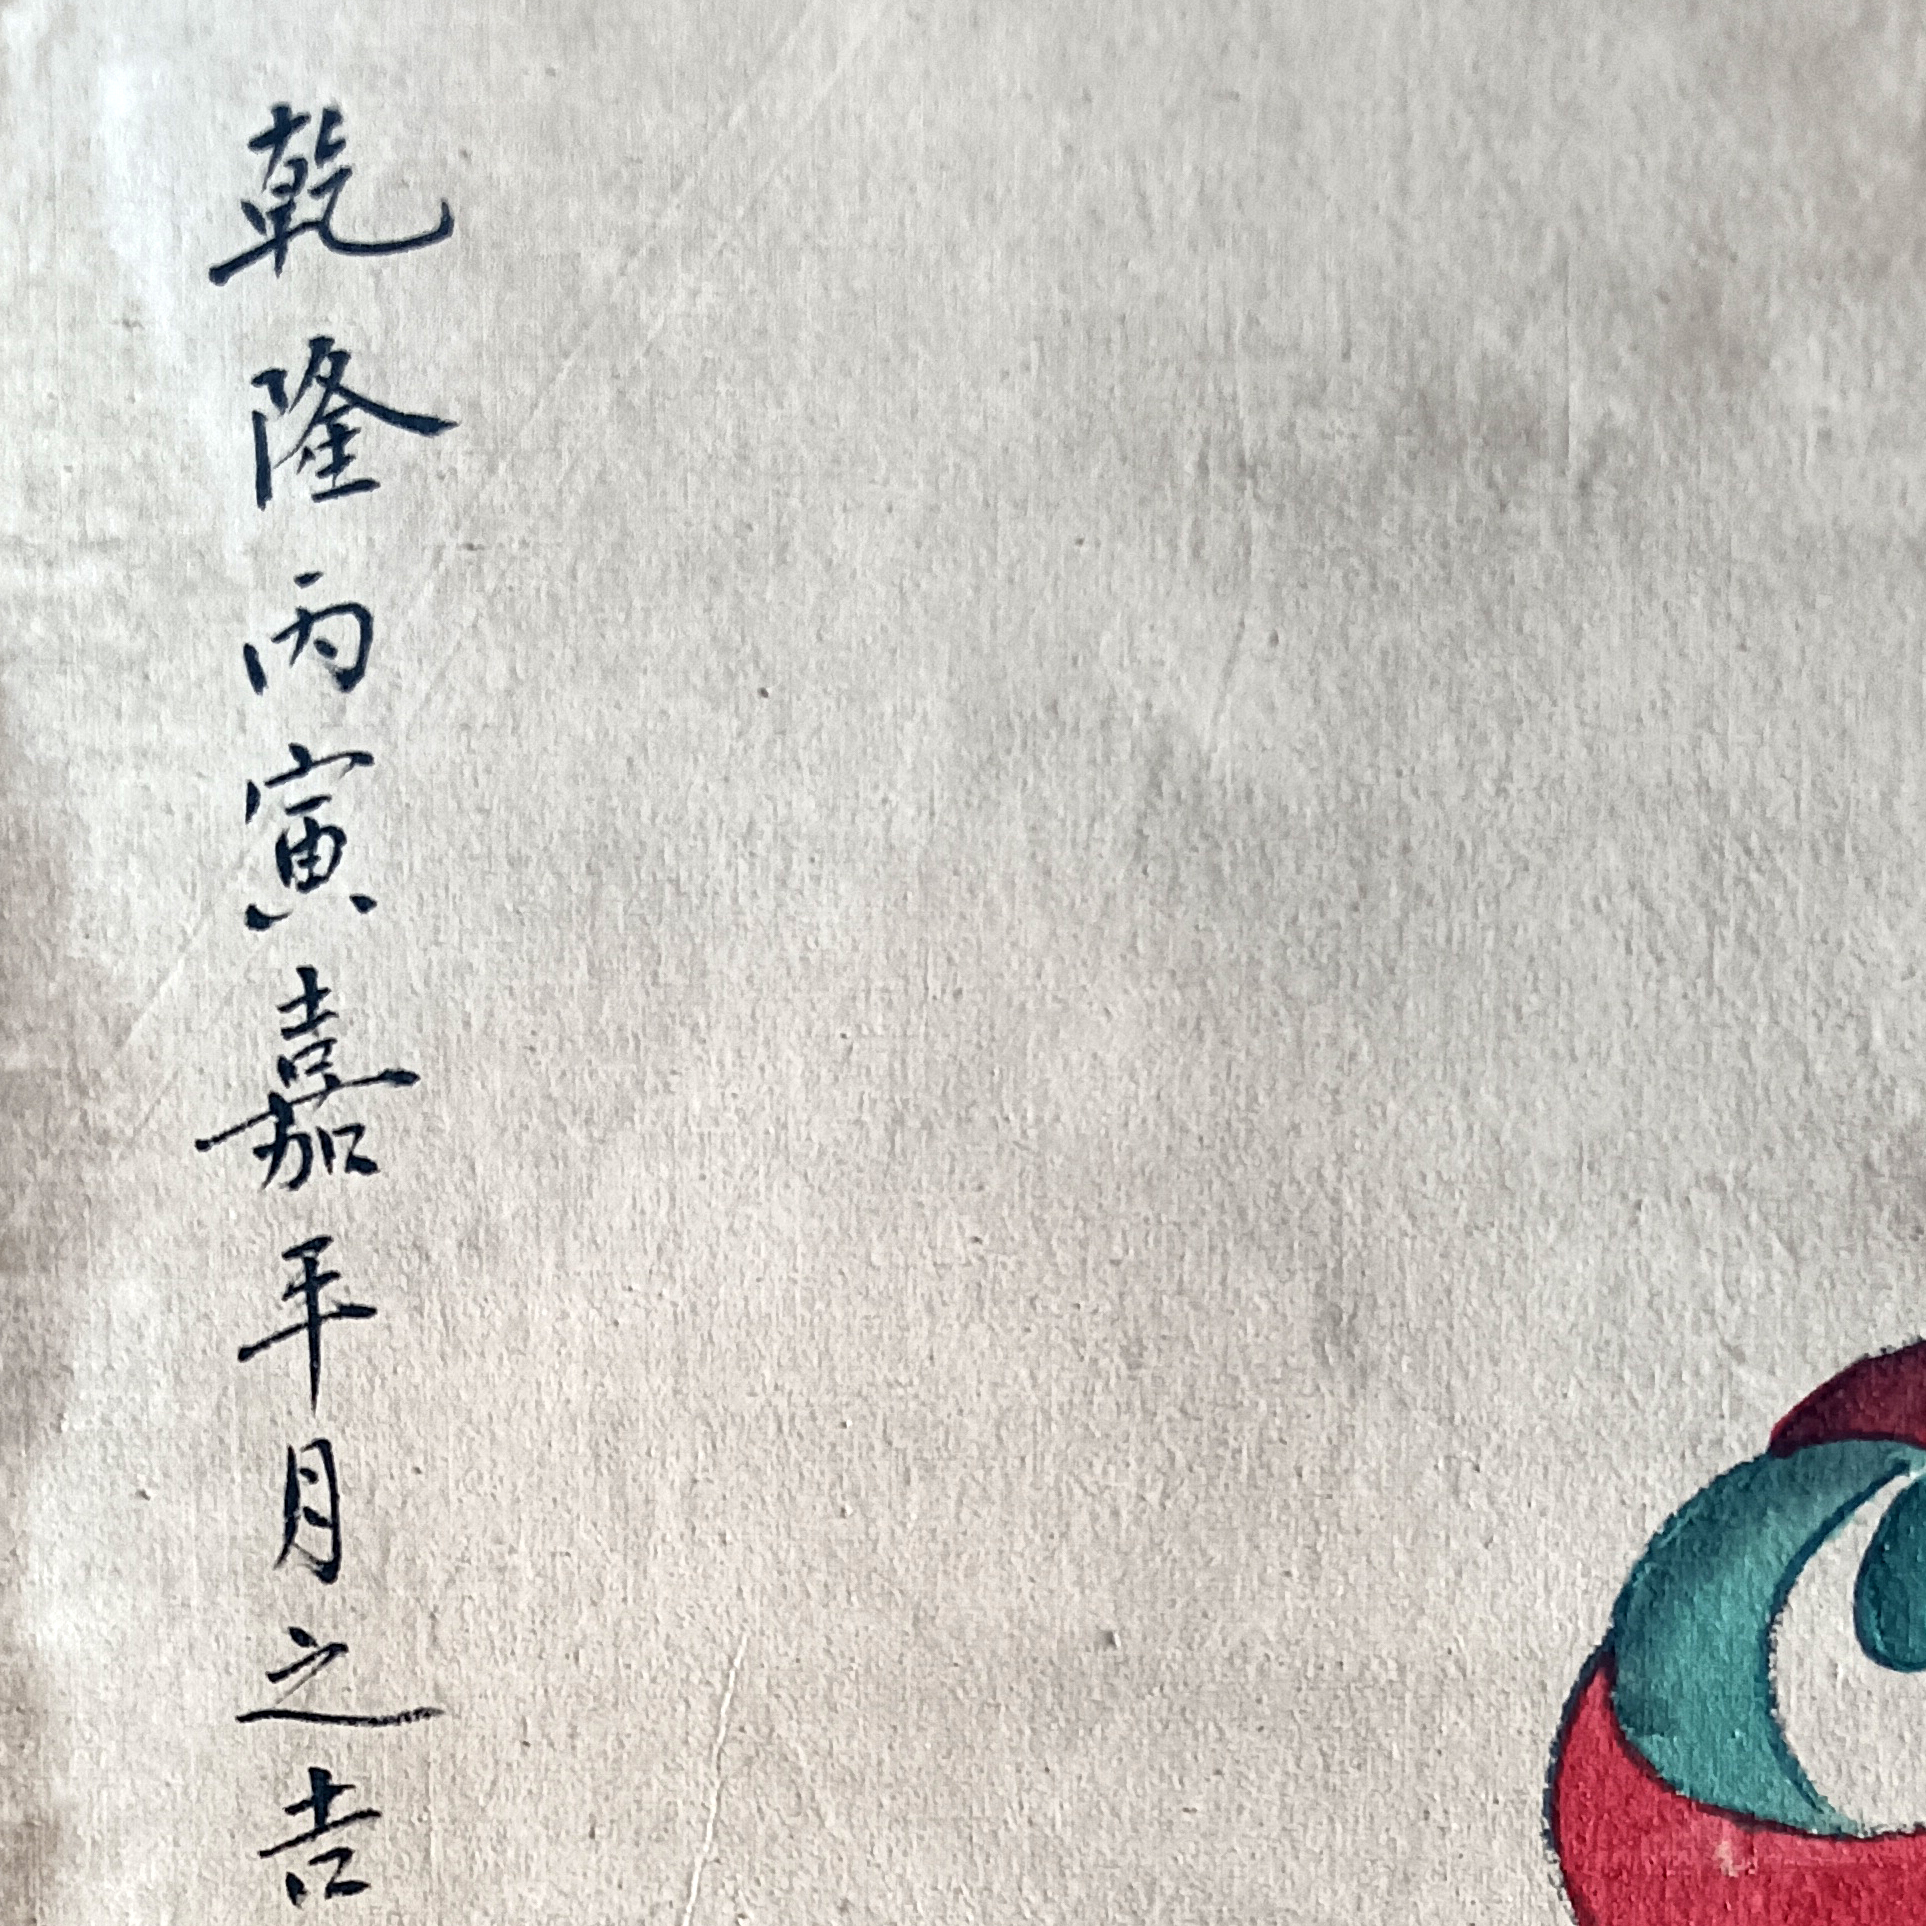 乾隆丙寅嘉平月之吉